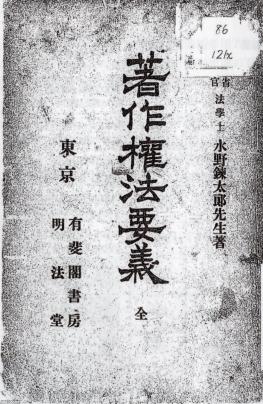 86
法學士 水野鍊太郎先生著
著作權法要義 全
東京
有斐閣書房
明法堂